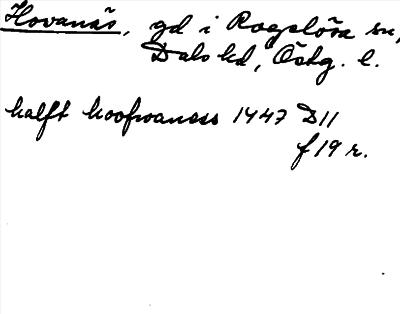 Hovanäs, gd i Rogslösa sn,
Dals hd, Östg. l.
halft hoofwaness 1447 D11
f 19 r.